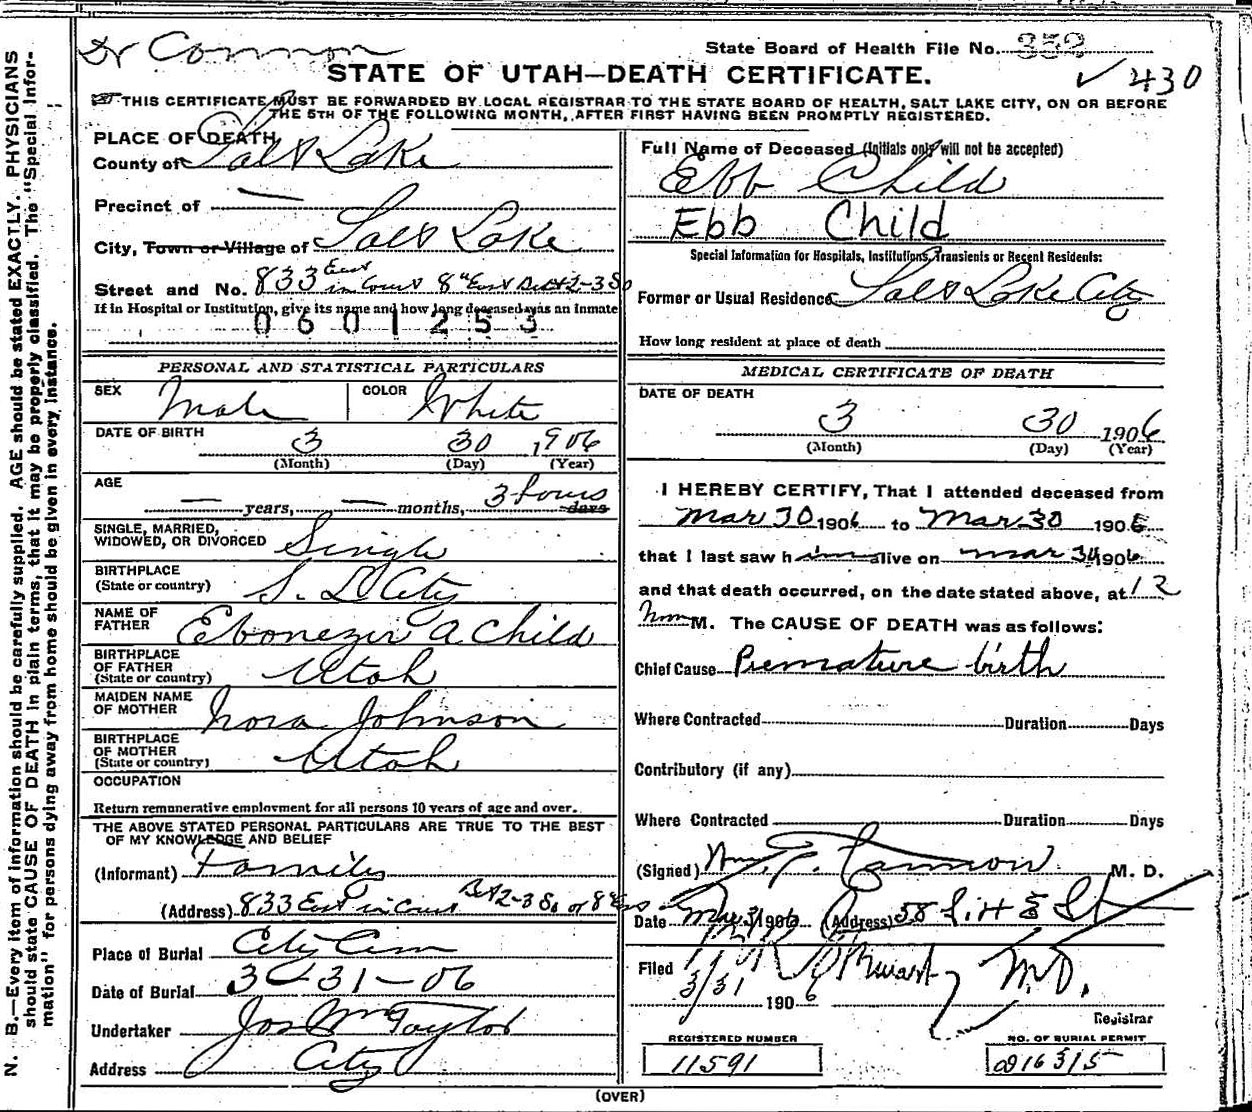 Dr Connon
State Board of Health File No. 352
STATE OF UTAH—DEATH CERTIFICATE.
✓ 430
THIS CERTIFICATE MUST BE FORWARDED BY LOCAL REGISTRAR TO THE STATE BOARD OF HEALTH, SALT LAKE CITY, ON OR BEFORE
THE 5TH OF THE FOLLOWING MONTH, AFTER FIRST HAVING BEEN PROMPTLY REGISTERED.
N. B.—Every item of information should be carefully supplied. AGE should be stated EXACTLY. PHYSICIANS
should state CAUSE OF DEATH in plain terms, that it may be properly classified. The "Special Infor-
mation" for persons dying away from home should be given in every instance.
PLACE OF DEATH
County of Salt Lake
Precinct of —
City, Town or Village of Salt Lake
Street and No. 833 East in Court 8th East Bet 2-3 So
If in Hospital or Institution, give its name and how long deceased was an inmate
0601253
PERSONAL AND STATISTICAL PARTICULARS
SEX Male COLOR White
DATE OF BIRTH 3 30 1906
(Month) (Day) (Year)
AGE — years, — months, 3 hours days
SINGLE, MARRIED,
WIDOWED, OR DIVORCED Single
BIRTHPLACE
(State or country) S. L City
NAME OF
FATHER Ebenezer A Child
BIRTHPLACE
OF FATHER
(State or country) Utah
MAIDEN NAME
OF MOTHER Nora Johnson
BIRTHPLACE
OF MOTHER
(State or country) Utah
OCCUPATION
Return remunerative employment for all persons 10 years of age and over.
THE ABOVE STATED PERSONAL PARTICULARS ARE TRUE TO THE BEST
OF MY KNOWLEDGE AND BELIEF
(Informant) Family
(Address) 833 East in Court Bet 2-3 So or 8th East
Place of Burial City Cem
Date of Burial 3-31-06
Undertaker Jos Wm Taylor
Address City
Full Name of Deceased (Initials only will not be accepted)
Ebb Child
Ebb Child
Special Information for Hospitals, Institutions, Transients or Recent Residents:
Former or Usual Residence Salt Lake City
How long resident at place of death
MEDICAL CERTIFICATE OF DEATH
DATE OF DEATH
3 30 1906
(Month) (Day) (Year)
I HEREBY CERTIFY, That I attended deceased from
Mar 30 1906 to Mar 30 1906
that I last saw him alive on Mar 30 1906
and that death occurred, on the date stated above, at 12
Noon M. The CAUSE OF DEATH was as follows:
Chief Cause Premature birth
Where Contracted Duration Days
Contributory (if any)
Where Contracted Duration Days
(Signed) Wm. T. Cannon M. D.
Date Mar 31 1906 (Address) 58 St
Filed 3/31 1906 M.D.
Registrar
REGISTERED NUMBER
11591
NO. OF BURIAL PERMIT
(OVER)